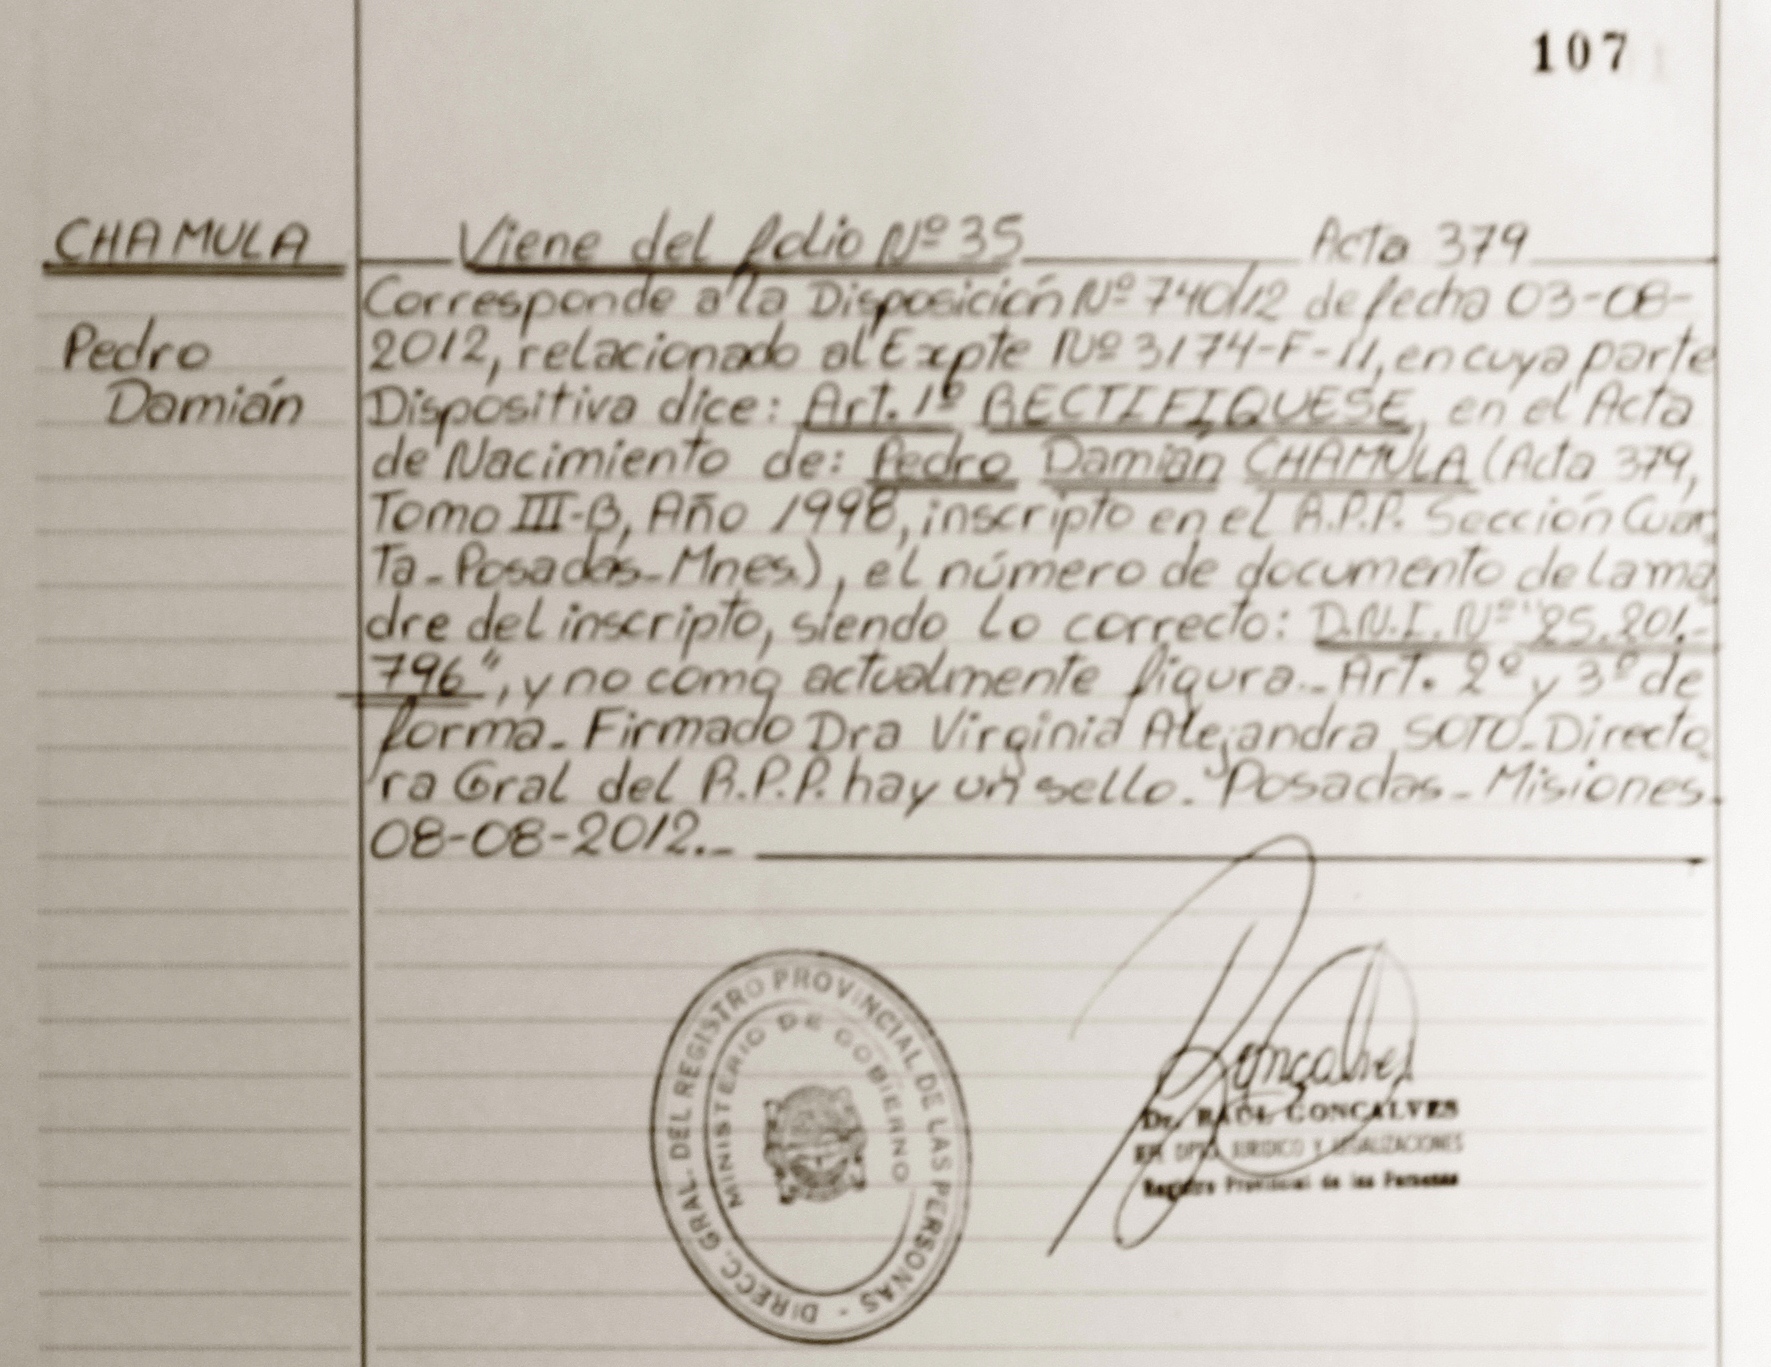 107
CHAMULA
Pedro
Damián
Viene del folio Nº 35 Acta 379
Corresponde a la Disposición Nº 740/12 de fecha 03-08-
2012, relacionado al Expte Nº 3174-F-11, en cuya parte
Dispositiva dice: Art. 1º RECTIFIQUESE, en el Acta
de Nacimiento de: Pedro Damián CHAMULA (Acta 379,
Tomo III-B, Año 1998, inscripto en el R.P.P. Sección Cuar
ta-Posadas-Mnes.), el número de documento de la ma
dre del inscripto, siendo lo correcto: D.N.I. Nº "25.201.-
796", y no como actualmente figura._ Art. 2º y 3º de
forma_ Firmado Dra Virginia Alejandra SOTO_Directo
ra Gral del R.P.P. hay un sello. Posadas_Misiones
08-08-2012._
DIRECC. GRAL. DEL REGISTRO PROVINCIAL DE LAS PERSONAS -
MINISTERIO DE GOBIERNO
Gonçalves
Dr. RAUL GONCALVES
DPTO. JURIDICO Y LEGALIZACIONES
Registro Provincial de las Personas